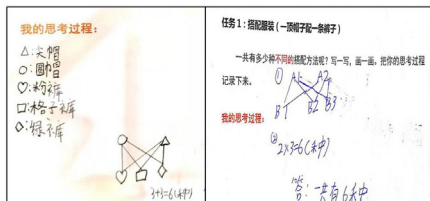 我的思考过程：
△：尖帽
○：圆帽
♡：粉裤
□：格子裤
◇：绿裤
3+3=6(种)
任务1：搭配服装（一顶帽子配一条裤子）
一共有多少种不同的搭配方法呢？写一写，画一画，把你的思考过程
记录下来。
① A1 A2
B1 B2 B3
我的思考过程：
② 2×3=6(种)
答：一共有6种